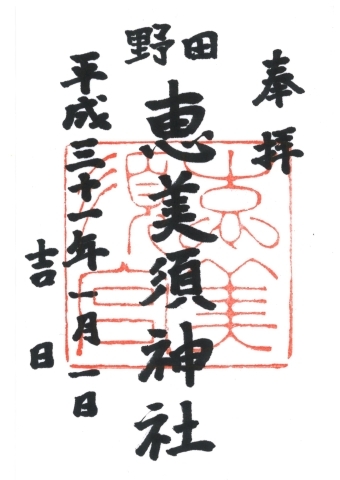 奉拝
野田
恵美須神社
平成三十一年一月一日
吉日
恵美
須宮